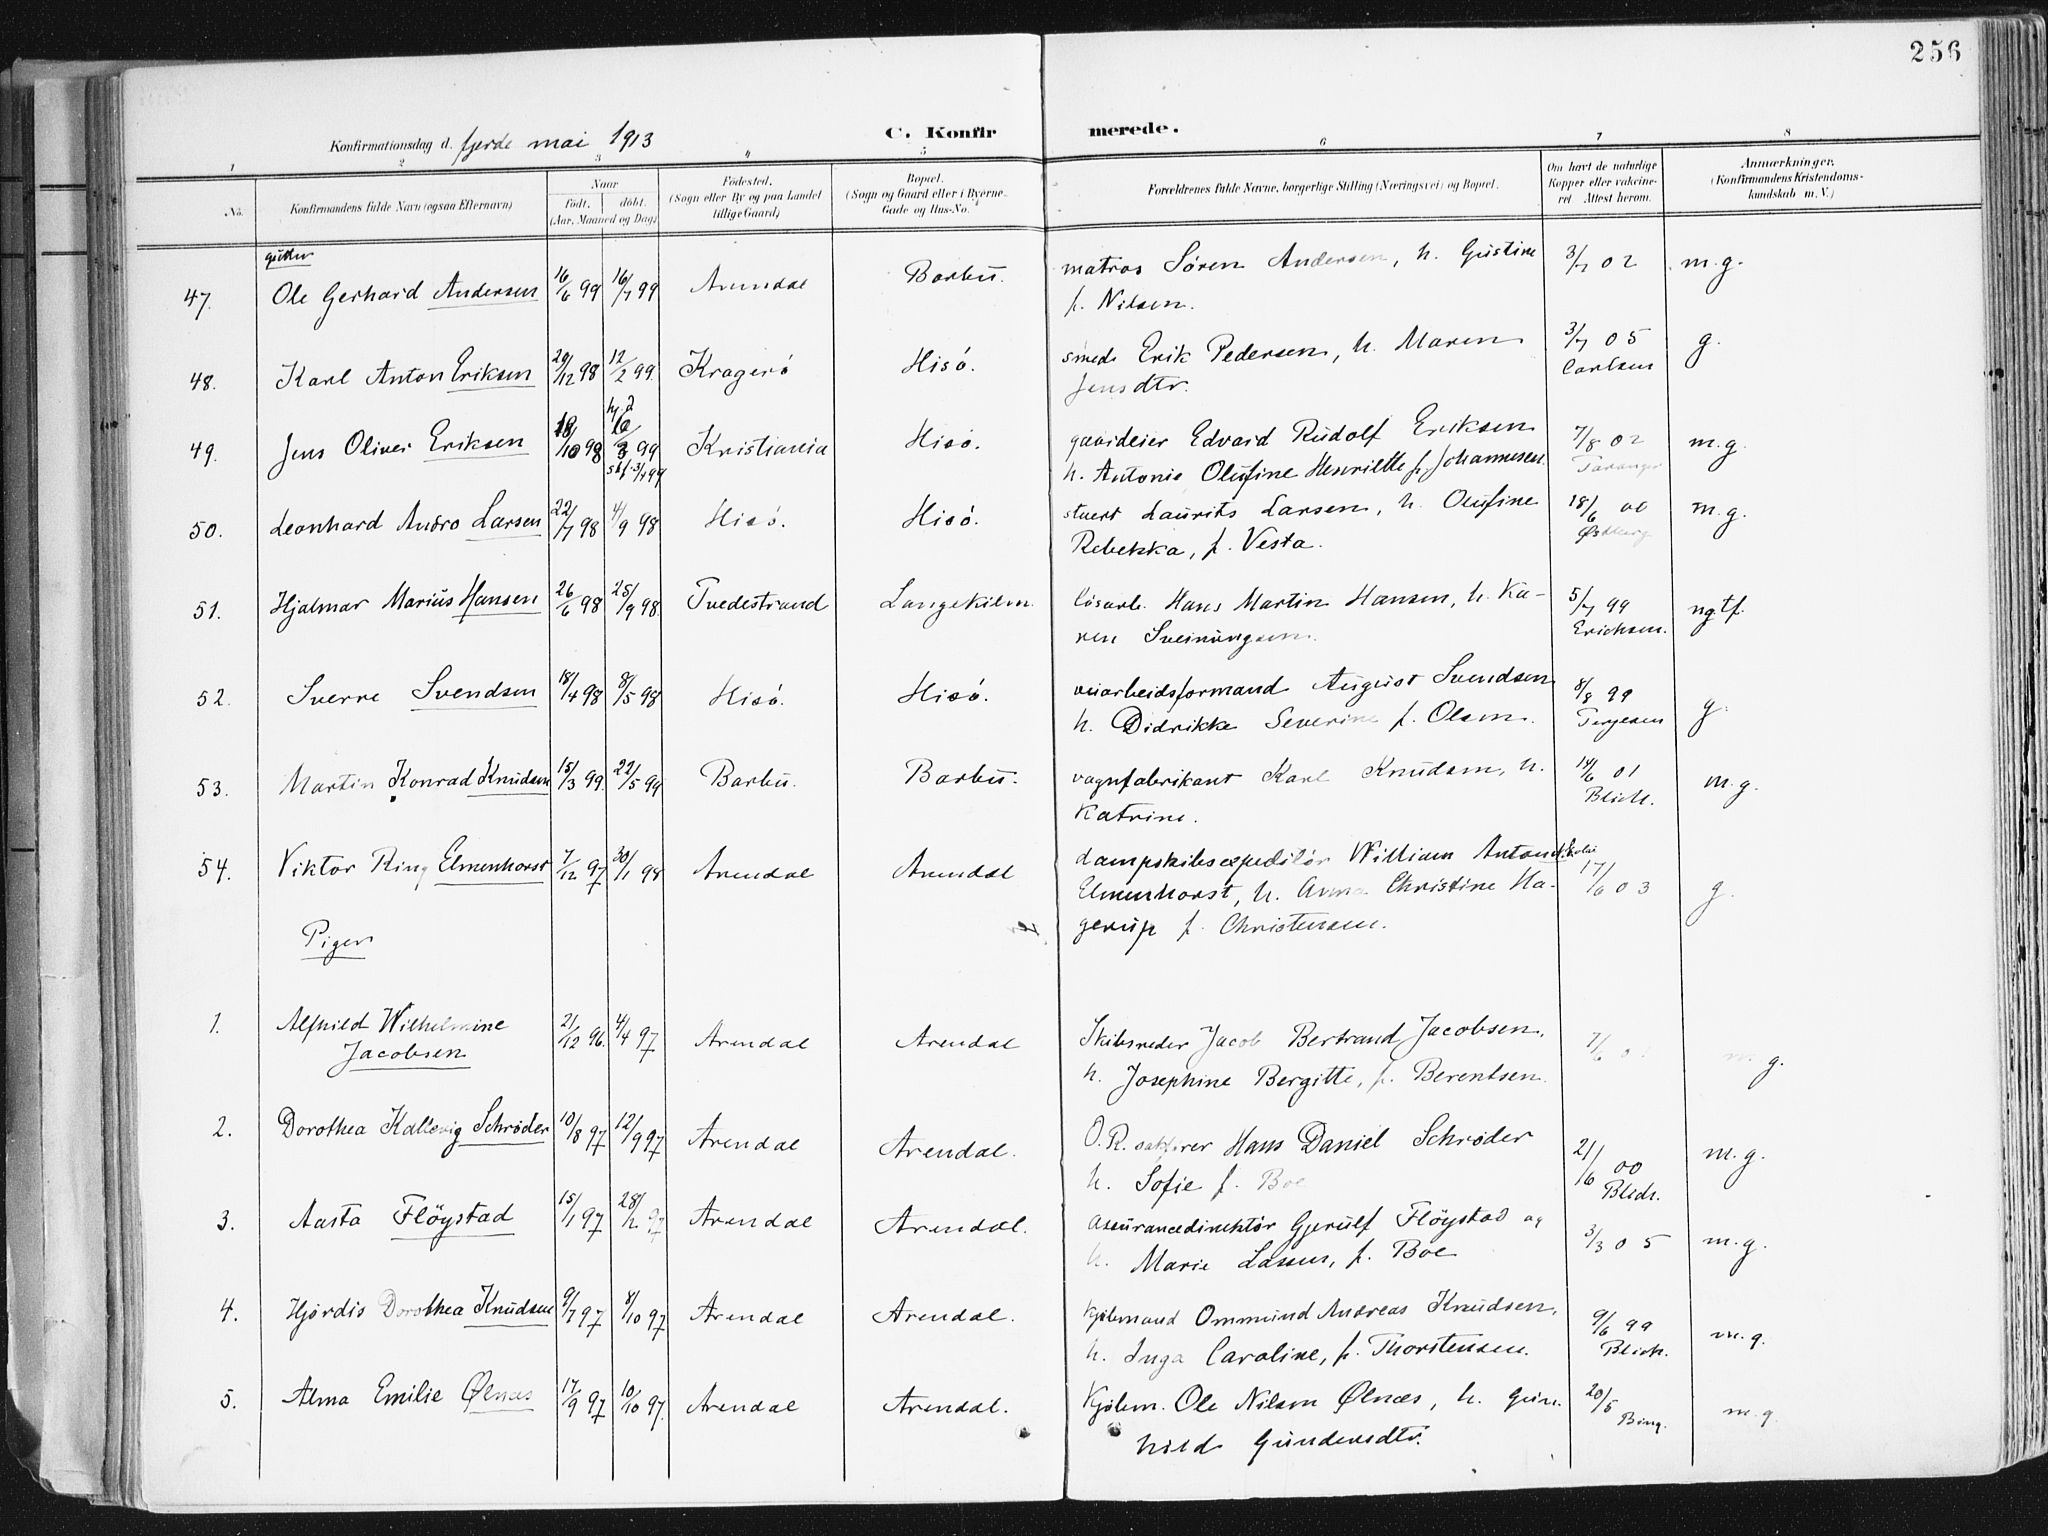 256
Konfirmationsdag d. fjerde mai 1913
C. Konfirmerede.
1 2 3 4 5 6 7 8
No. Konfirmandens fulde Navn (ogsaa Efternavn) Naar født. døbt. (Aar, Maaned og Dag) Fødested. (Sogn eller By og paa Landet tillige Gaard) Bopæl. (Sogn og Gaard eller i Byerne Gade og Hus-No.) Forældrenes fulde Navne, borgerlige Stilling (Næringsvei) og Bopæl. Om havt de naturlige Kopper eller vaccineret Attest herom. Anmærkninger. (Konfirmandens Kristendomskundskab m. V.)
gutter
47. Ole Gerhard Andersen 16/6 99 16/7 99 Arendal Barbu. matros Søren Andersen, h. Gustine 3/7 02 m.g.
f. Nilsen.
48. Karl Anton Eriksen 29/12 98 12/2 99. Kragerö Hisö. smed Erik Pedersen, h. Maren 3/7 05 g.
Jensdtr. Carlsen
49. Jens Oliver Eriksen 18/10 98 99 Kristiania Hisö. gaardeier Edvard Rudolf Eriksen 7/8 02 m.g.
h. Antonie Olufine Henriette f. Johannesen.
50. Leonhard Andro Larsen 22/7 98 4/9 98 Hisö. Hisö. stuert Laurits Larsen, h. Olufine 18/6 00 m.g.
Rebekka, f. Vesta.
51. Hjalmar Marius Hansen 26/6 98 25/9 98 Tvedestrand Langekilen. løsarb. Hans Martin Hansen, h. Ka- 5/7 99 ngtf.
ren Sveinungsen. Erichsen.
52. Sverre Svendsen 18/4 98 8/5 98 Hisö. Hisö. veiarbeidsformand August Svendsen 8/8 99 g.
h. Didrikke Severine f. Olsen. Terjesen
53. Martin Konrad Knudsen 15/3 99. 22/5 99 Barbu. Barbu. vognfabrikant Karl Knudsen, h. 14/6 01 m.g.
Katrine. Blich.
54. Viktor Ring Elmenhorst 7/12 97 30/1 98 Arendal Arendal dampskibsexpeditör William Anton Nikolai
Elmenhorst, h. Anna Christine Ha- 17/6 03 g.
gerup f. Christensen.
Piger
1. Alfhild Wilhelmine 21/12 96. 4/4 97 Arendal Arendal Skibsreder Jacob Bertrand Jacobsen, 7/6 m.g.
Jacobsen h. Josephine Bergitte, f. Berentsen.
2. Dorothea Kallevig Schrøder 10/8 97 12/9 97 Arendal Arendal. O.R. sakfører Hans Daniel Schrøder 21/6 00 m.g.
h. Sofie f. Boe Blich.
3. Aasta Flöystad 15/1 97 28/2 97 Arendal Arendal. assurancedirektör Gjerulf Flöystad og 3/3 05 m.g.
h. Marie Lassen, f. Boe
4. Hjørdis Dorothea Knudsen 9/7 97 8/10 97 Arendal Arendal. Kjøbmand Ommund Andreas Knudsen, 9/6 99 m.g.
h. Inga Caroline, f. Thorstensen. Blich.
5. Alma Emilie Ølnæs 17/9 97 10/10 97. Arendal Arendal. Kjøbm. Ole Nilsen Ølnæs, h. Gun- 20/5 m.g.
hild Gundersdtr. Bing.